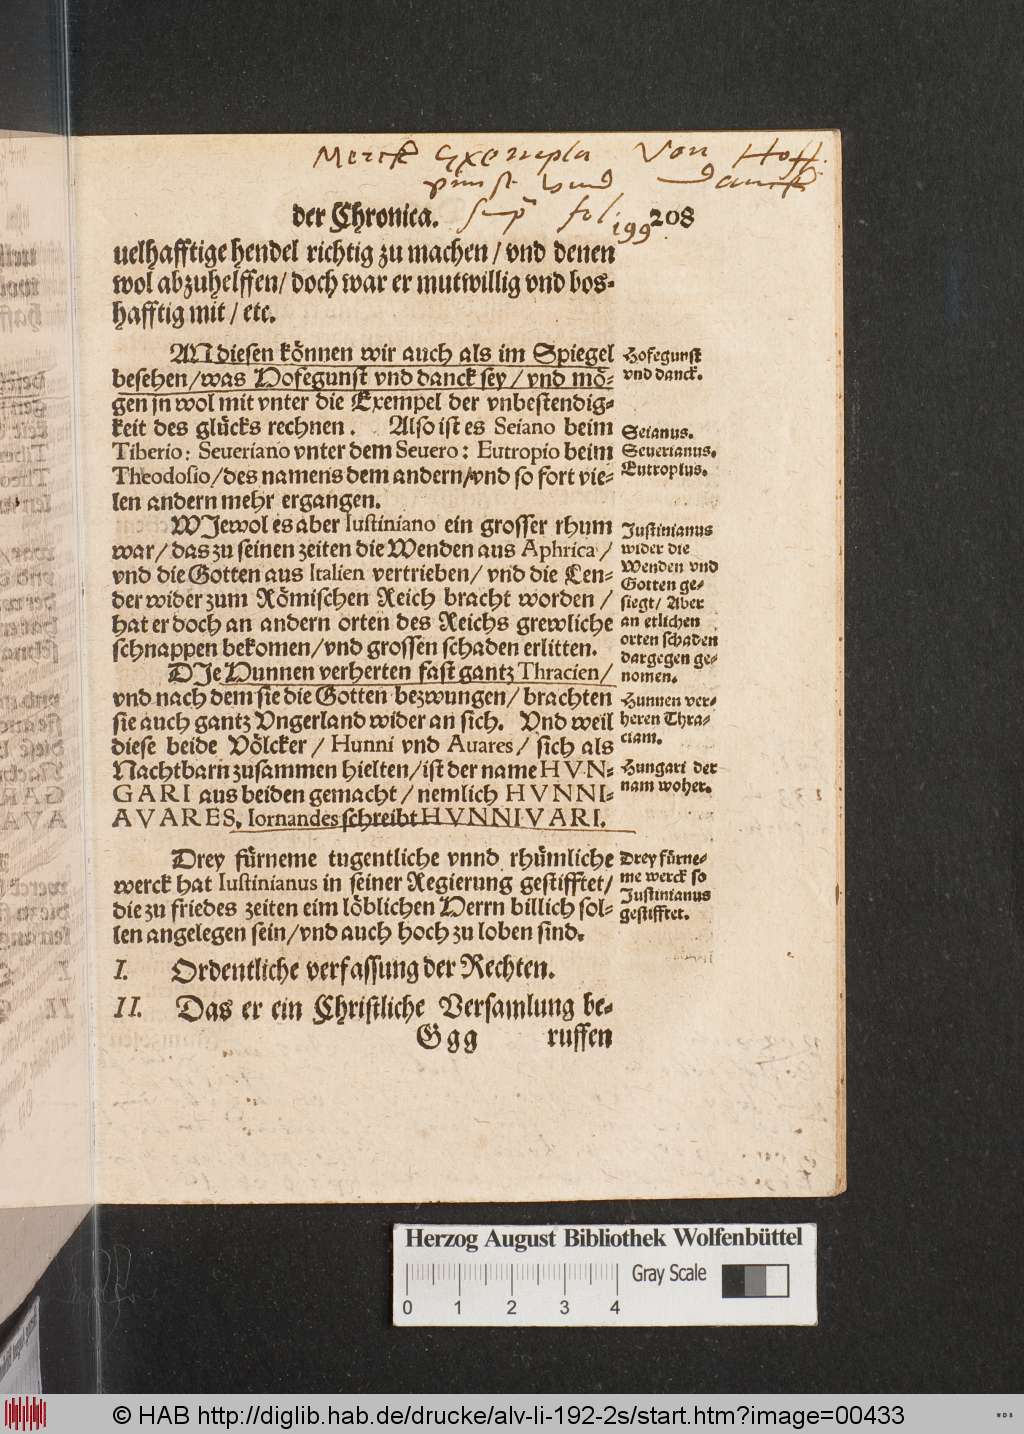 Merck Exempla Von Hoff
gunst vnd danck
der Chronica. sup fol. 199 208
uelhafftige hendel richtig zu machen / vnd denen
wol abzuhelffen / doch war er mutwillig vnd bos-
hafftig mit / etc.
AN diesen können wir auch als im Spiegel
besehen / was Hofegunst vnd danck sey / vnd mö-
gen jn wol mit vnter die Exempel der vnbestendig-
keit des glücks rechnen. Also ist es Seiano beim
Tiberio: Seueriano vnter dem Seuero: Eutropio beim
Theodosio / des namens dem andern / vnd so fort vie-
len andern mehr ergangen.
Hofegunst
vnd danck.
Seianus.
Seuerianus.
Eutropius.
WJewol es aber Iustiniano ein grosser rhum
war / das zu seinen zeiten die Wenden aus Aphrica /
vnd die Gotten aus Italien vertrieben / vnd die Len-
der wider zum Römischen Reich bracht worden /
hat er doch an andern orten des Reichs grewliche
schnappen bekomen / vnd grossen schaden erlitten.
Justinianus
wider die
Wenden vnd
Gotten ge-
siegt / Aber
an etlichen
orten schaden
dargegen ge-
nomen.
DJe Hunnen verherten fast gantz Thracien /
vnd nach dem sie die Gotten bezwungen / brachten
sie auch gantz Vngerland wider an sich. Vnd weil
diese beide Völcker / Hunni vnd Auares / sich als
Nachtbarn zusammen hielten / ist der name HVN-
GARI aus beiden gemacht / nemlich HVNNI-
AVARES, Iornandes schreibt HVNNIVARI.
Hunnen ver-
heren Thra-
ciam.
Hungari der
nam woher.
Drey fürneme tugentliche vnnd rhümliche
werck hat Iustinianus in seiner Regierung gestifftet /
die zu friedes zeiten eim löblichen Herrn billich sol-
len angelegen sein / vnd auch hoch zu loben sind.
Drey fürne-
me werck so
Justinianus
gestifftet.
I. Ordentliche verfassung der Rechten.
II. Das er ein Christliche Versamlung be-
Ggg ruffen
Herzog August Bibliothek Wolfenbüttel
Gray Scale
0 1 2 3 4
© HAB http://diglib.hab.de/drucke/alv-li-192-2s/start.htm?image=00433